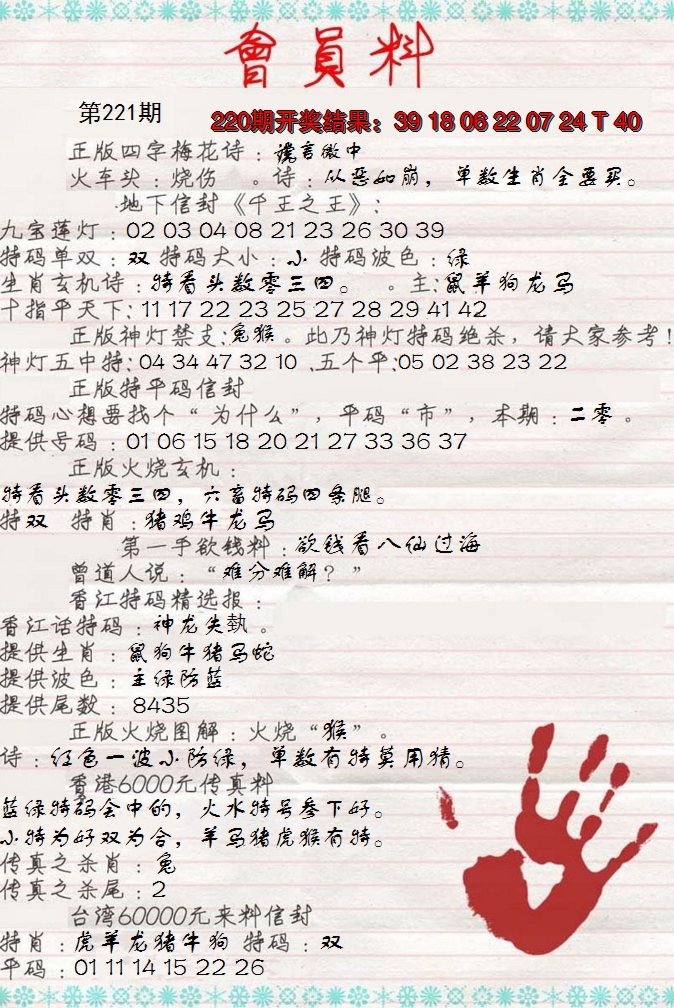 會員料
第221期
220期开奖结果：39 18 06 22 07 24 T 40
正版四字梅花诗：谗言微中
火车头：烧伤 。诗：从恶如崩，单数生肖全要买。
地下信封《千王之王》：
九宝莲灯：02 03 04 08 21 23 26 30 39
特码单双：双 特码大小：小 特码波色：绿
生肖玄机诗：特看头数零三四。 。主：鼠羊狗龙马
十指平天下：11 17 22 23 25 27 28 29 41 42
正版神灯禁支：兔猴。此乃神灯特码绝杀，请大家参考！
神灯五中特：04 34 47 32 10 .五个平：05 02 38 23 22
正版特平码信封
特码心想要找个“为什么”，平码“市”，本期：二零。
提供号码：01 06 15 18 20 21 27 33 36 37
正版火烧玄机：
特看头数零三四，六畜特码四条腿。
特双 特肖：猪鸡牛龙马
第一手欲钱料：欲钱看八仙过海
曾道人说：“难分难解？”
香江特码精选报：
香江话特码：神龙失埶。
提供生肖：鼠狗牛猪马蛇
提供波色：主绿防蓝
提供尾数：8435
正版火烧图解：火烧“猴”。
诗：红色一波小防绿，单数有特莫用猜。
香港6000元传真料
蓝绿特码会中的，火水特号叁下好。
小特为好双为合，羊马猪虎猴有特。
传真之杀肖：兔
传真之杀尾：2
台湾60000元来料信封
特肖：虎羊龙猪牛狗 特码：双
平码：01 11 14 15 22 26